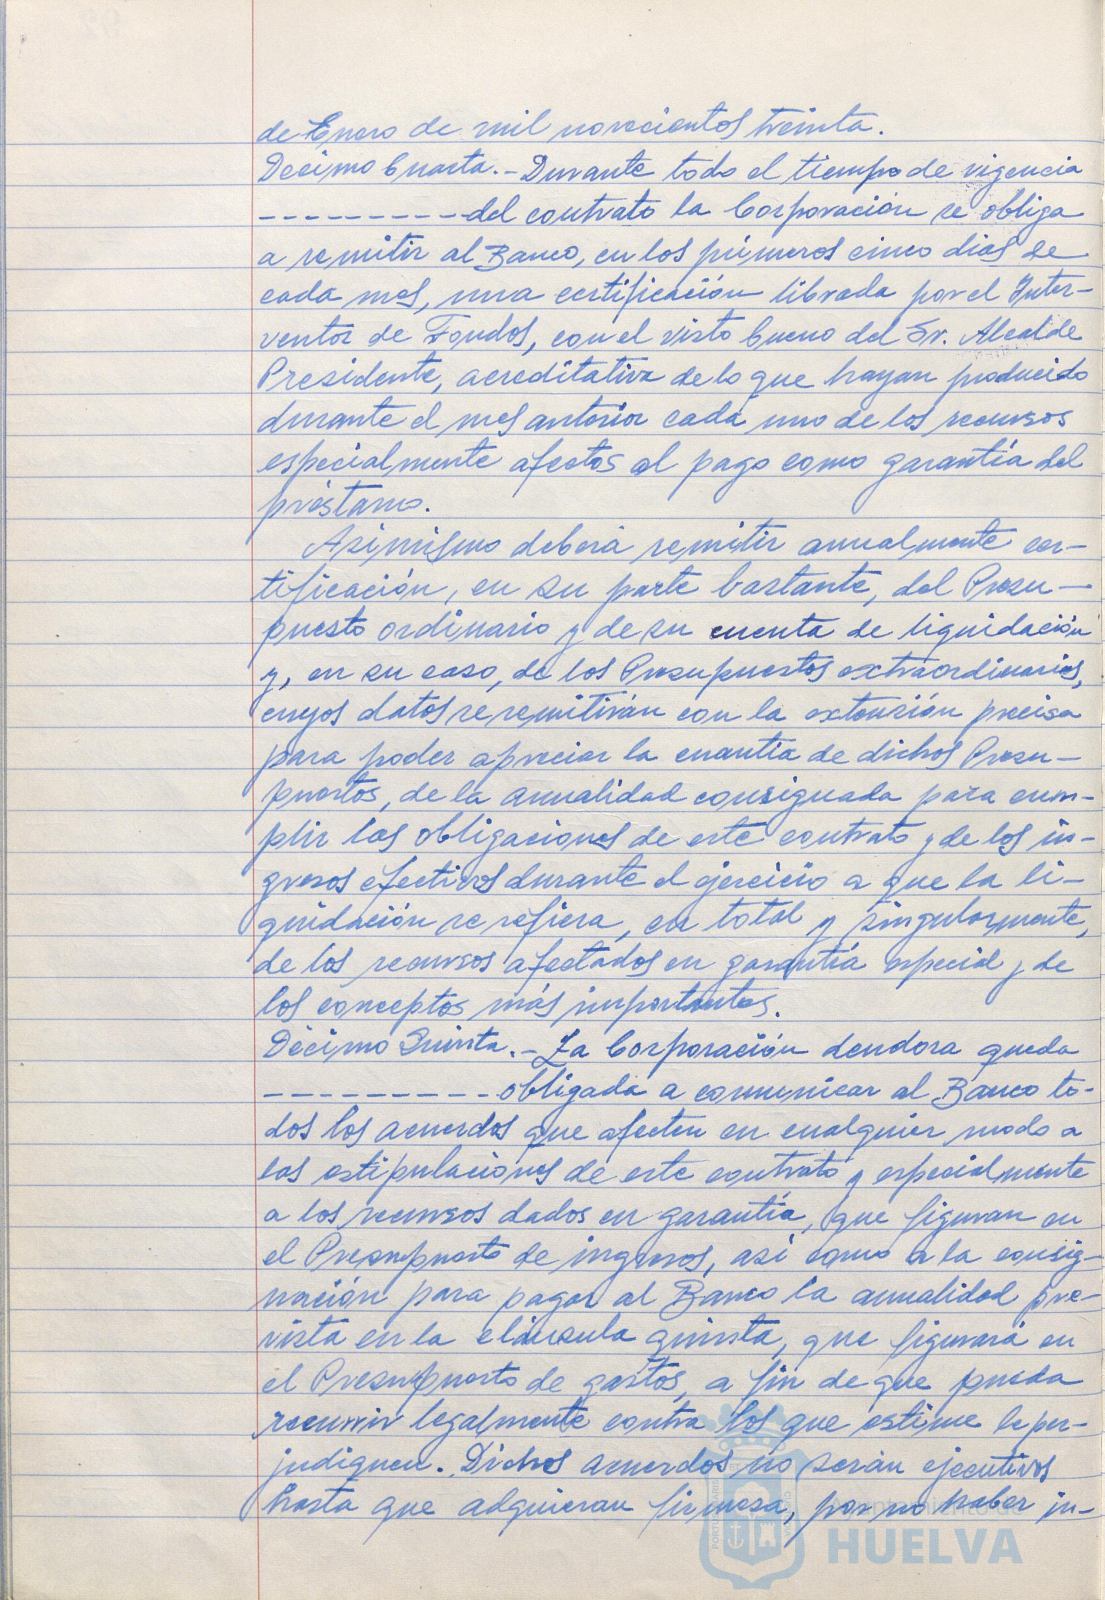 de Enero de mil novecientos treinta.
Décimo Cuarta.- Durante todo el tiempo de vigencia
----------del contrato la Corporación se obliga
a remitir al Banco, en los primeros cinco dias de
cada mes, una certificación librada por el Inter-
ventor de Fondos, con el visto bueno del Sr. Alcalde
Presidente, acreditativa de lo que hayan producido
durante el mes anterior cada uno de los recursos
especialmente afectos al pago como garantía del
préstamo.
Asimismo deberá remitir anualmente cer-
tificación, en su parte bastante, del Presu-
puesto ordinario y de su cuenta de liquidación
y, en su caso, de los Presupuestos extraordinarios,
cuyos datos se remitirán con la extensión precisa
para poder apreciar la cuantía de dichos Presu-
puestos, de la anualidad consignada para cum-
plir las obligaciones de este contrato y de los in-
gresos efectivos durante el ejercicio a que la li-
quidación se refiera, en total y singularmente,
de los recursos afectados en garantía especial y de
los conceptos más importantes.
Décimo Quinta.- La Corporación deudora queda
----------obligada a comunicar al Banco to-
dos los acuerdos que afecten en cualquier modo a
las estipulaciones de este contrato y especialmente
a los recursos dados en garantía, que figuran en
el Presupuesto de ingresos, así como a la consig-
nación para pagar al Banco la anualidad pre-
vista en la cláusula quinta, que figurará en
el Presupuesto de gastos, a fin de que pueda
recurrir legalmente contra los que estime le per-
judiquen. Dichos acuerdos no serán ejecutivos
hasta que adquieran firmeza, por no haber in-
Ayuntamiento de
HUELVA